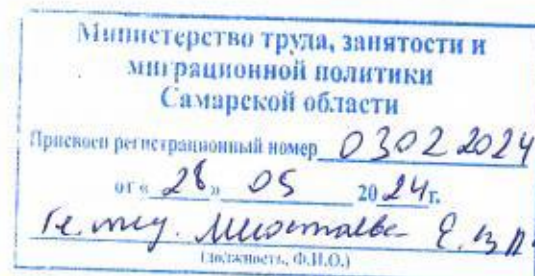 Министерство труда, занятости и
миграционной политики
Самарской области
Присвоен регистрационный номер 03022024
от « 28 » 05 2024г.
Гл.
(должность, Ф.И.О.)